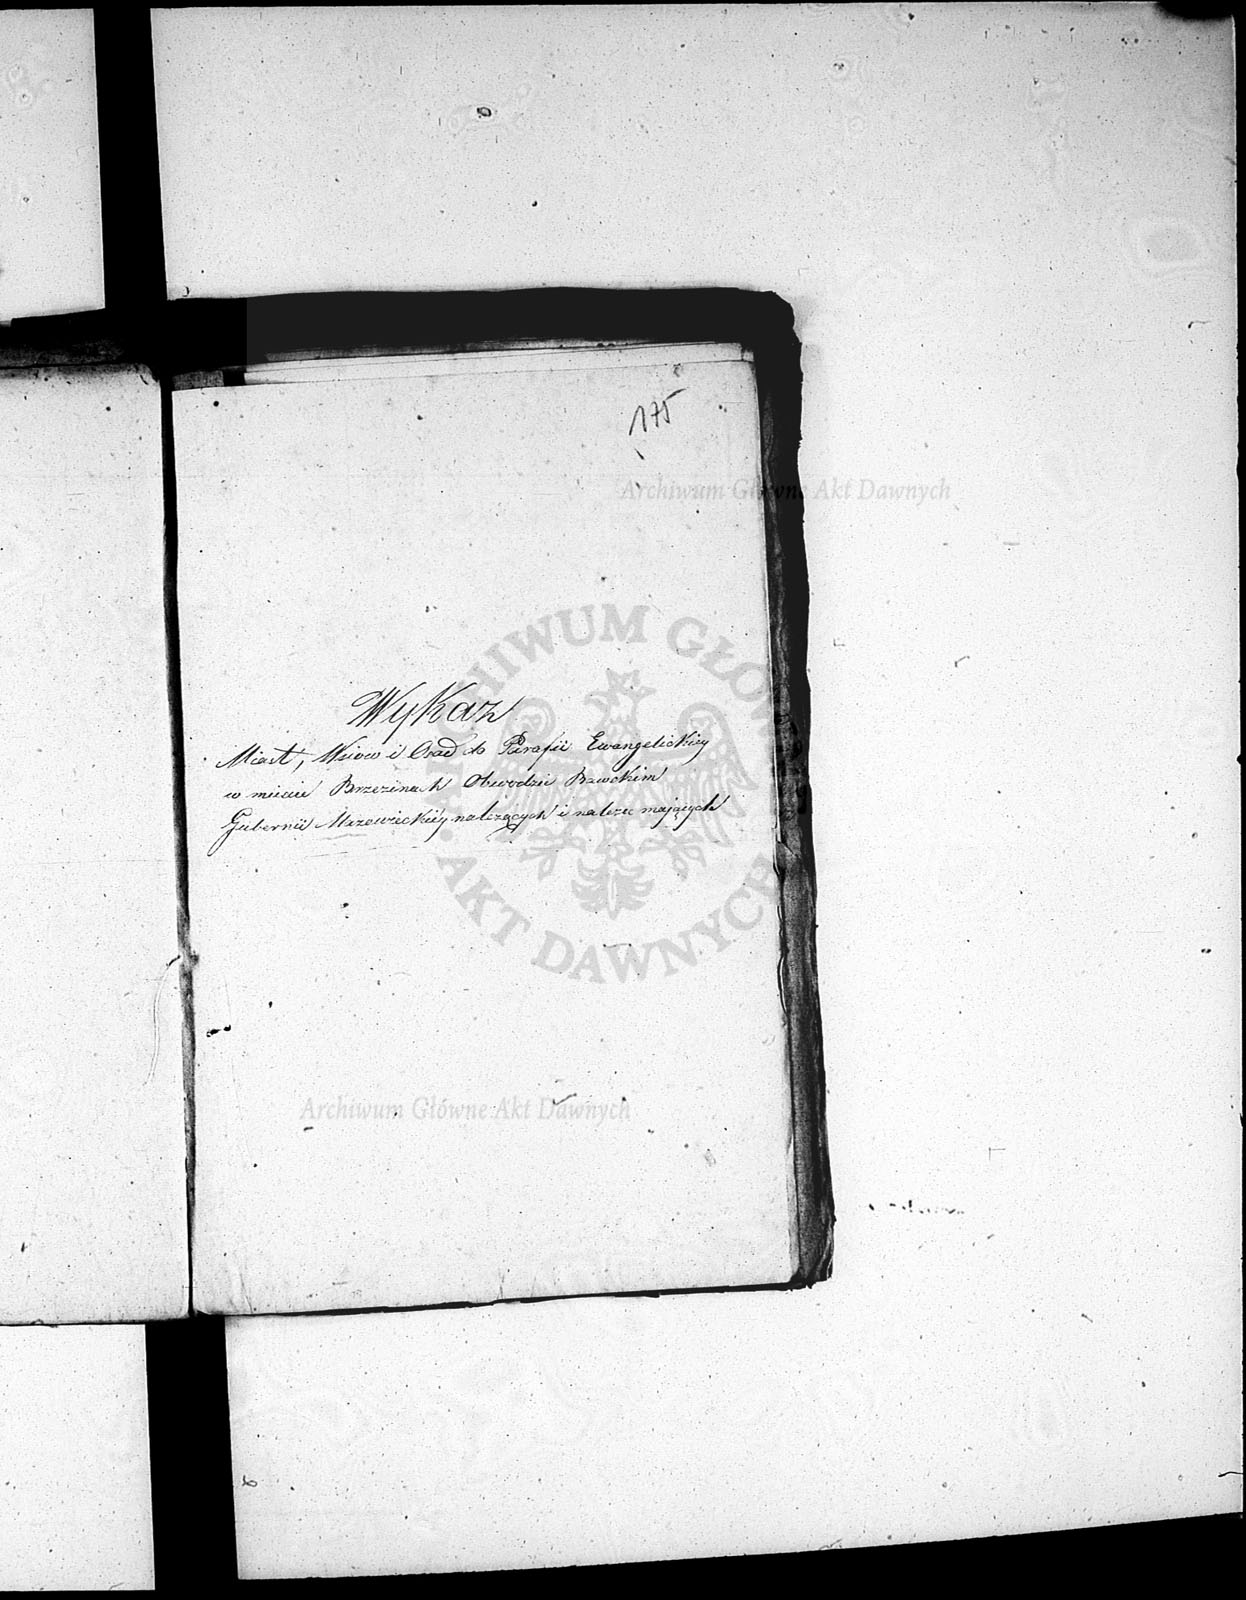 175
Archiwum Główne Akt Dawnych
Wykaz
Miast, Wsiow i Osad do Parafii Ewangelickiey
w miescie Brzezinach Obwodzie Rawskim
Gubernii Mazowieckiey należących i należeć mających
ARCHIWUM GŁÓWNE AKT DAWNYCH
Archiwum Główne Akt Dawnych